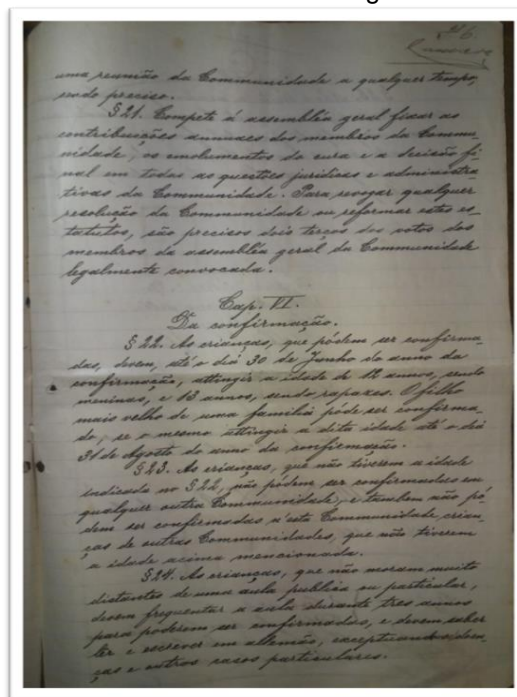 uma reunião da Communidade a qualquer tempo,
sendo preciso.
§ 21. Compete á assembléa geral fixar as
contribuições annuaes dos membros da Commu-
nidade, os emolumentos do cura e a decisão fi-
nal em todas as questões juridicas e administra
tivas da Communidade. Para revogar qualquer
resolução da Communidade ou reformar estes es-
tatutos, são precisos dois terços dos votos dos
membros da assembléa geral da Communidade
legalmente convocada.
Cap. VI.
Da confirmação.
§ 22. As crianças, que pódem ser confirma-
das, devem, até o dia 30 de Junho do anno da
confirmação, attingir a idade de 12 annos, sendo
meninas, e 13 annos, sendo rapazes. O filho
mais velho de uma familia póde ser confirma-
do, se o mesmo attingir a dita idade até o dia
31 de Agosto do anno da confirmação.
§ 23. As crianças, que não tiverem a idade
indicada no § 22, não pódem ser confirmadas em
qualquer outra Communidade, e tambem não pó-
dem ser confirmadas n'esta Communidade, crian-
ças de outras Communidades, que não tiverem
a idade acima mencionada.
§ 24. As crianças, que não moram muito
distantes de uma aula publica ou particular,
devem frequentar a aula durante tres annos
para poderem ser confirmadas, e devem saber
ler e escrever em allemão, exceptuando doen-
ças e outros casos particulares.